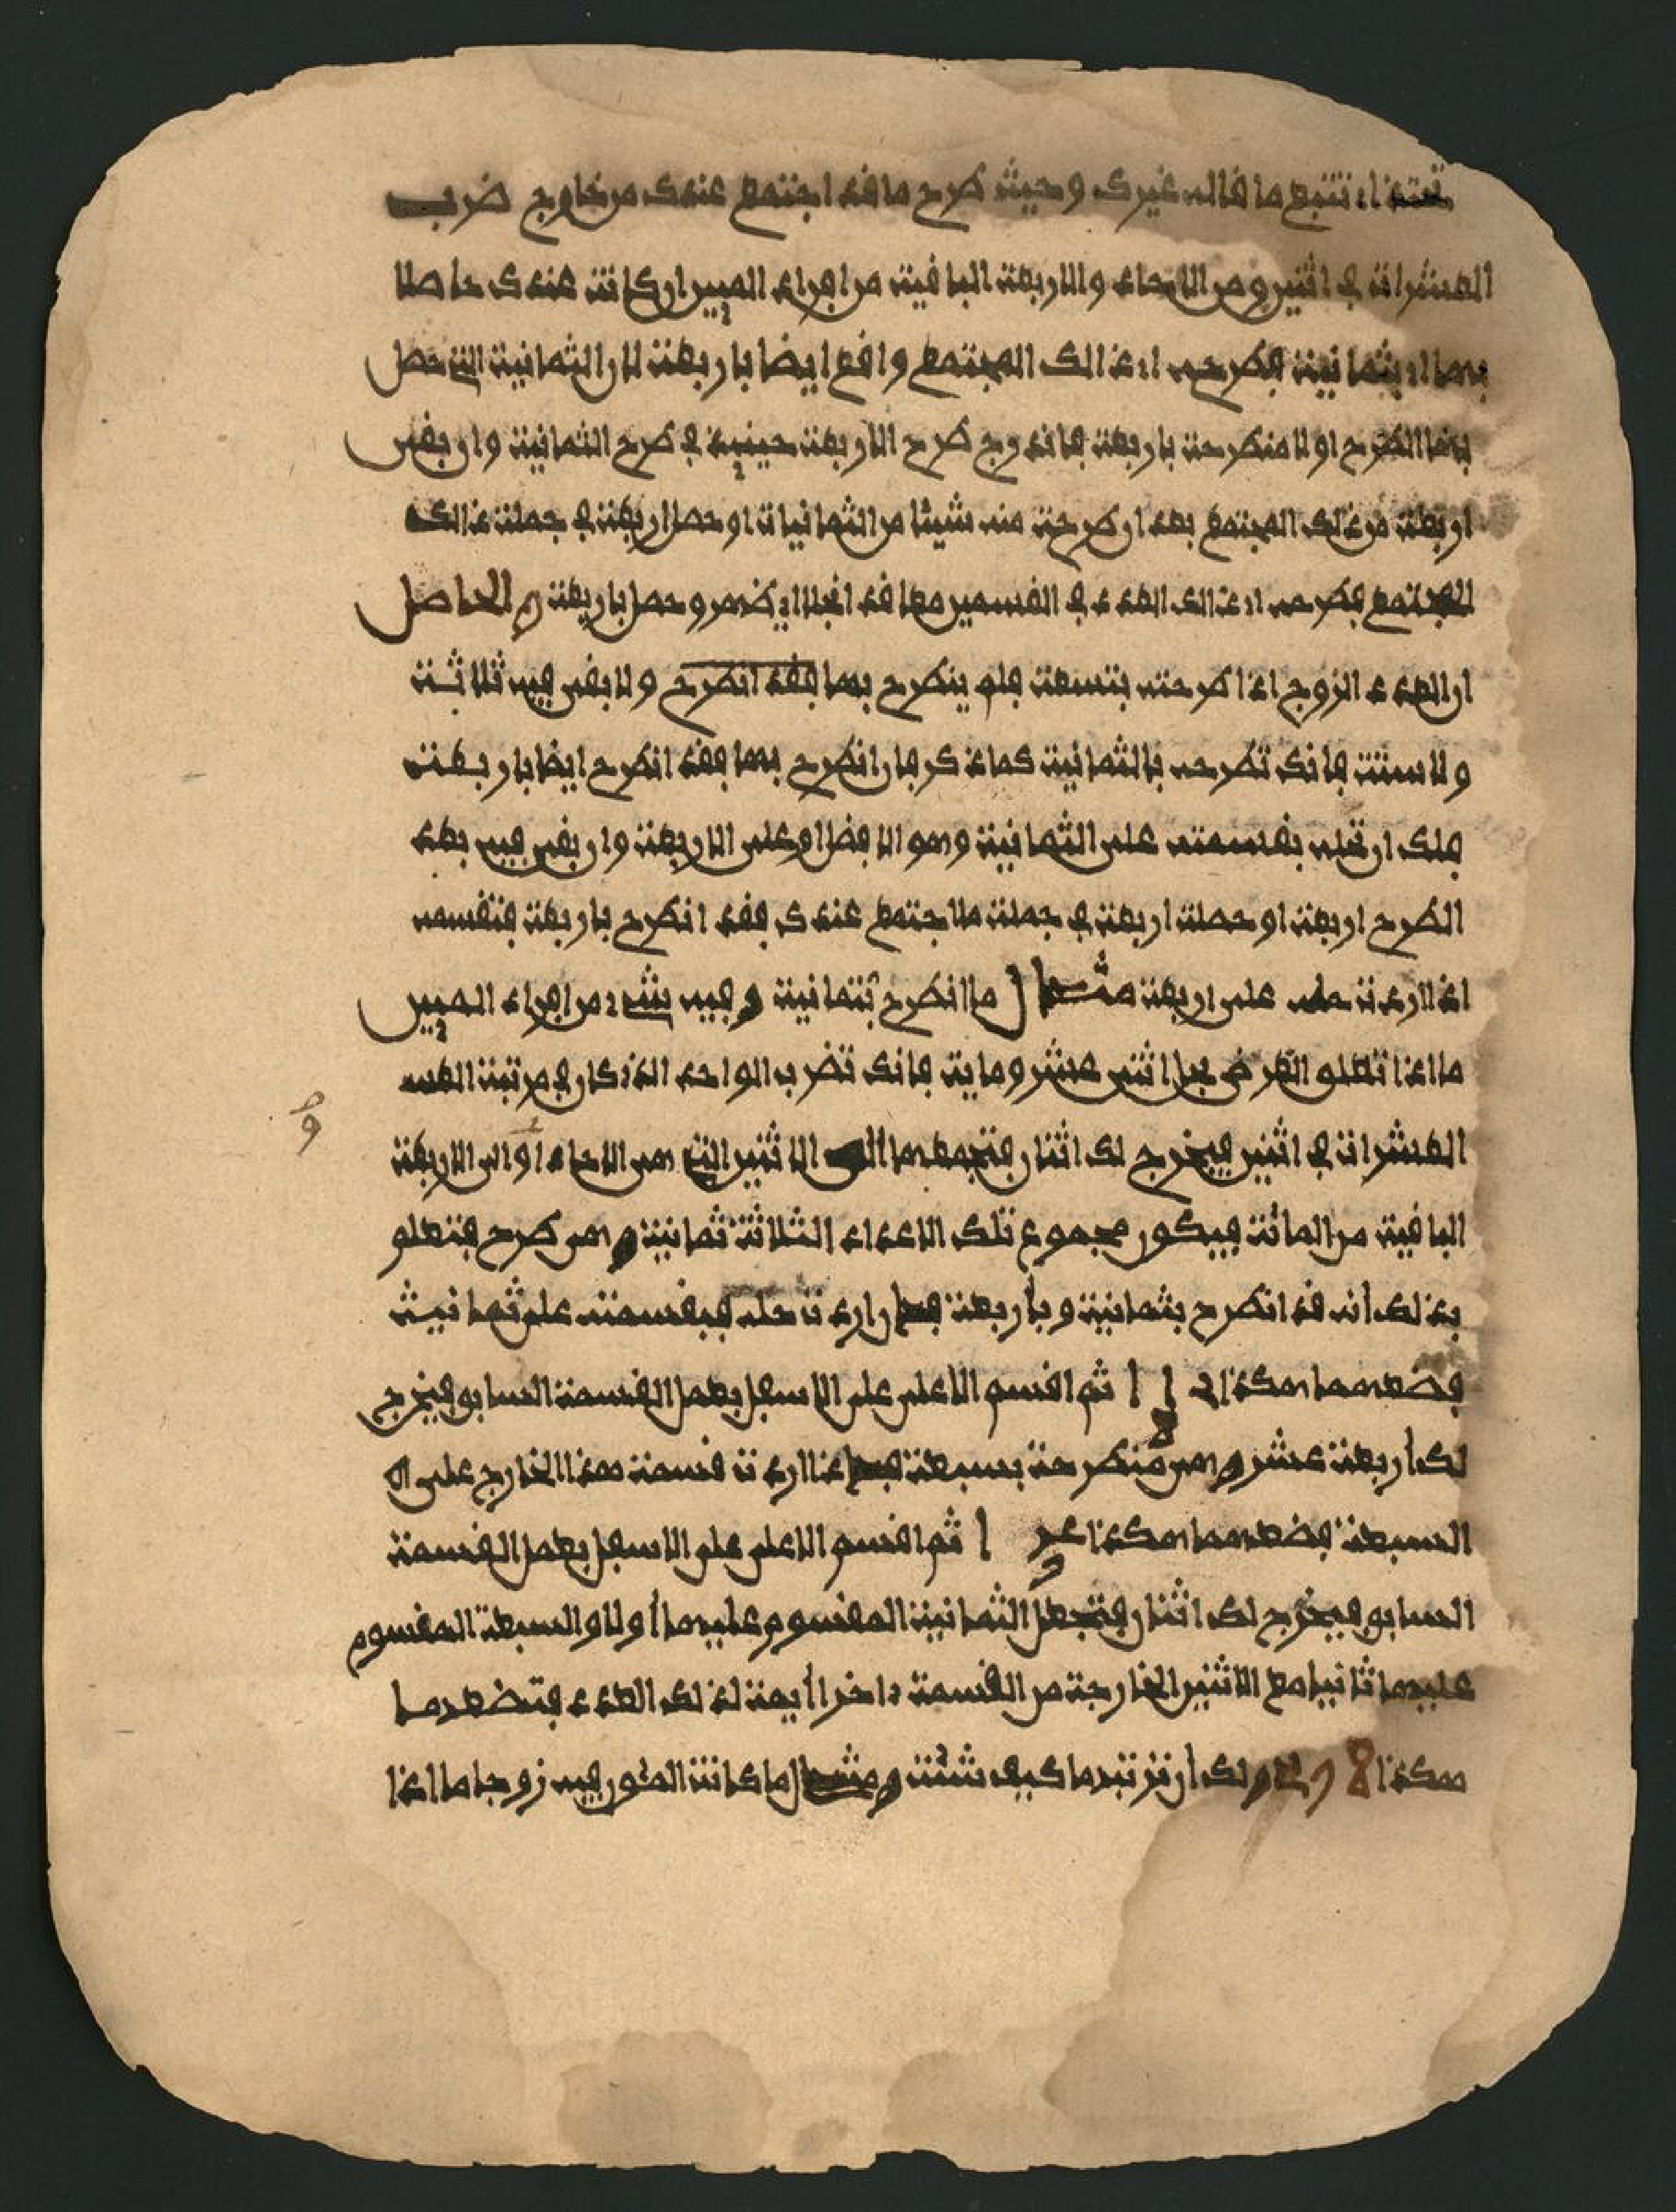 تتبع ما قاله غيرك وحيث طرح ما قد اجتمع عندك من خارج ضرب
العشرات في اثنين ومن الآحاد والاربعة الباقية من افراد الميين ان كانت عندك حاصلا
بهما اي بثمانية فطرحه اي ذالك المجتمع واقع ايضا باربعة لان الثمانية التي حصل
بها الطرح اولا منطرحة باربعة فاندرج طرح الاربعة حينيذ في طرح الثمانية وان بقى
اربعة من ذلك المجتمع بعد ان طرحت منه شيئا من الثمانيات او حصل اربعة في جملة ذالك
المجتمع فطرحه اي ذالك العدد في القسمين معا قد انجلا اي ظهر وحصل باربعة والحاصل
ان العدد الزوج اذا طرحته بتسعة فلم ينطرح بها فقد انطرح ولا بقى فيه ثلاثة
ولا ستة فانك تطرحه بالثمانية كما ذكر فان انطرح بها فقد انطرح ايضا باربعة
فلك ان تحله بقسمته على الثمانية وهو الافضل او على الاربعة وان بقى فيه بعد
الطرح اربعة او حصلت اربعة في جملة ما اجتمع عندك فقد انطرح باربعة فتقسمه
اذا اردت حله على اربعة مثال ما انطرح بثمانية وفيه شيء من افراد الميين
ما اذا اتعلم الطرح في اثنى عشر وماية فانك تضرب الواحد الذي كان في مرتبة
العشرات في اثنين فيخرج لك اثنان فتجمعهما الى الاثنين التي هي الآحاد والى الاربعة
الباقية من المائة فيكون مجموع تلك الاعداد الثلاثة ثمانية وهي طرح فتعلم
بذلك أنه قد انطرح بثمانية وبأربعة فان اردت حله فبقسمته على ثمانية
فضعهما هكذا ثم اقسم الاعلى على الاسفل بعمل القسمة السابق فيخرج
لك أربعة عشر وهي منطرحة بسبعة فاذا اردت قسمة هذا الخارج على
السبعة فضعهما هكذا ثم اقسم الاعلى على الاسفل بعمل القسمة
السابق فيخرج لك اثنان فتجعل الثمانية المقسوم عليها أولا والسبعة المقسوم
عليها ثانيا مع الاثنين الخارجة من القسمة اخرا أيمة لذلك العدد فتضعها
هكذا ٨ ٧ ٢ ولك أن ترتبها كيف شئت ومثال ما كانت المئون فيه زوجا ما اذا